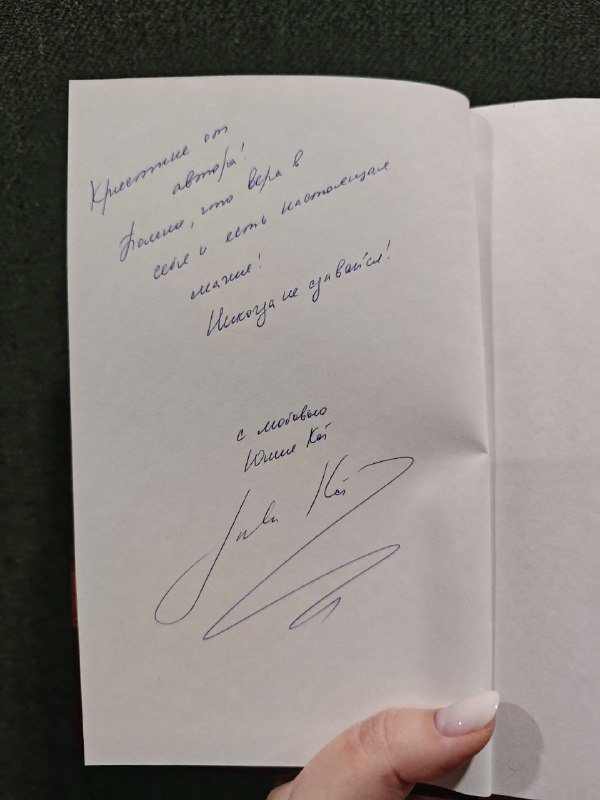 Кристине от
автора!
Помни, что вера в
себя и есть настоящая
магия!
Никогда не сдавайся!
с любовью
Юлия Кай